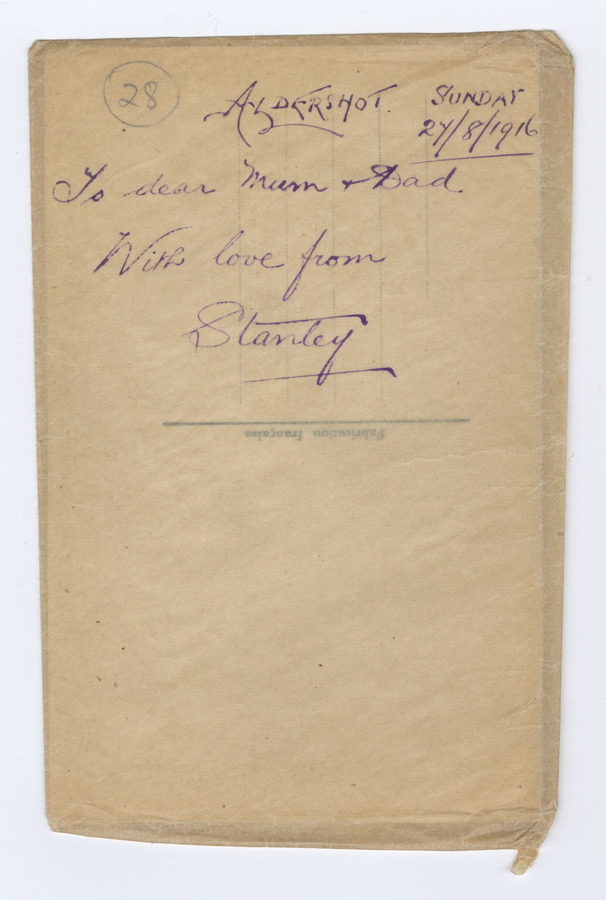 28
ALDERSHOT. SUNDAY
27/8/1916
To dear Mum + Dad.
With love from
Stanley
Fabrication française